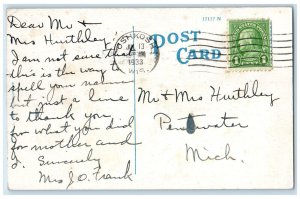 Dear Mr &
Mrs Huithley,
I am not sure that
this is the way to
spell your name
but just a line
to thank you
for what you did
for mother and
I. Sincerely
Mrs J. O. Frank
OSHKOSH
13
1933
WIS.
POST
CARD
Mr & Mrs Huithley
Pentwater
Mich.